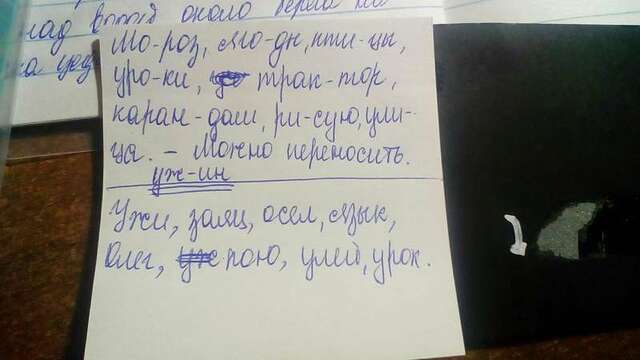 лад около берега
Мо-роз, яго-ды, пти-цы,
уро-ки, трак-тор,
каран-даш, ри-сую, ули-
ца. – Можно переносить.
уж-ин
Ужи, заяц, осел, язык,
Олег, пою, улей, урок.